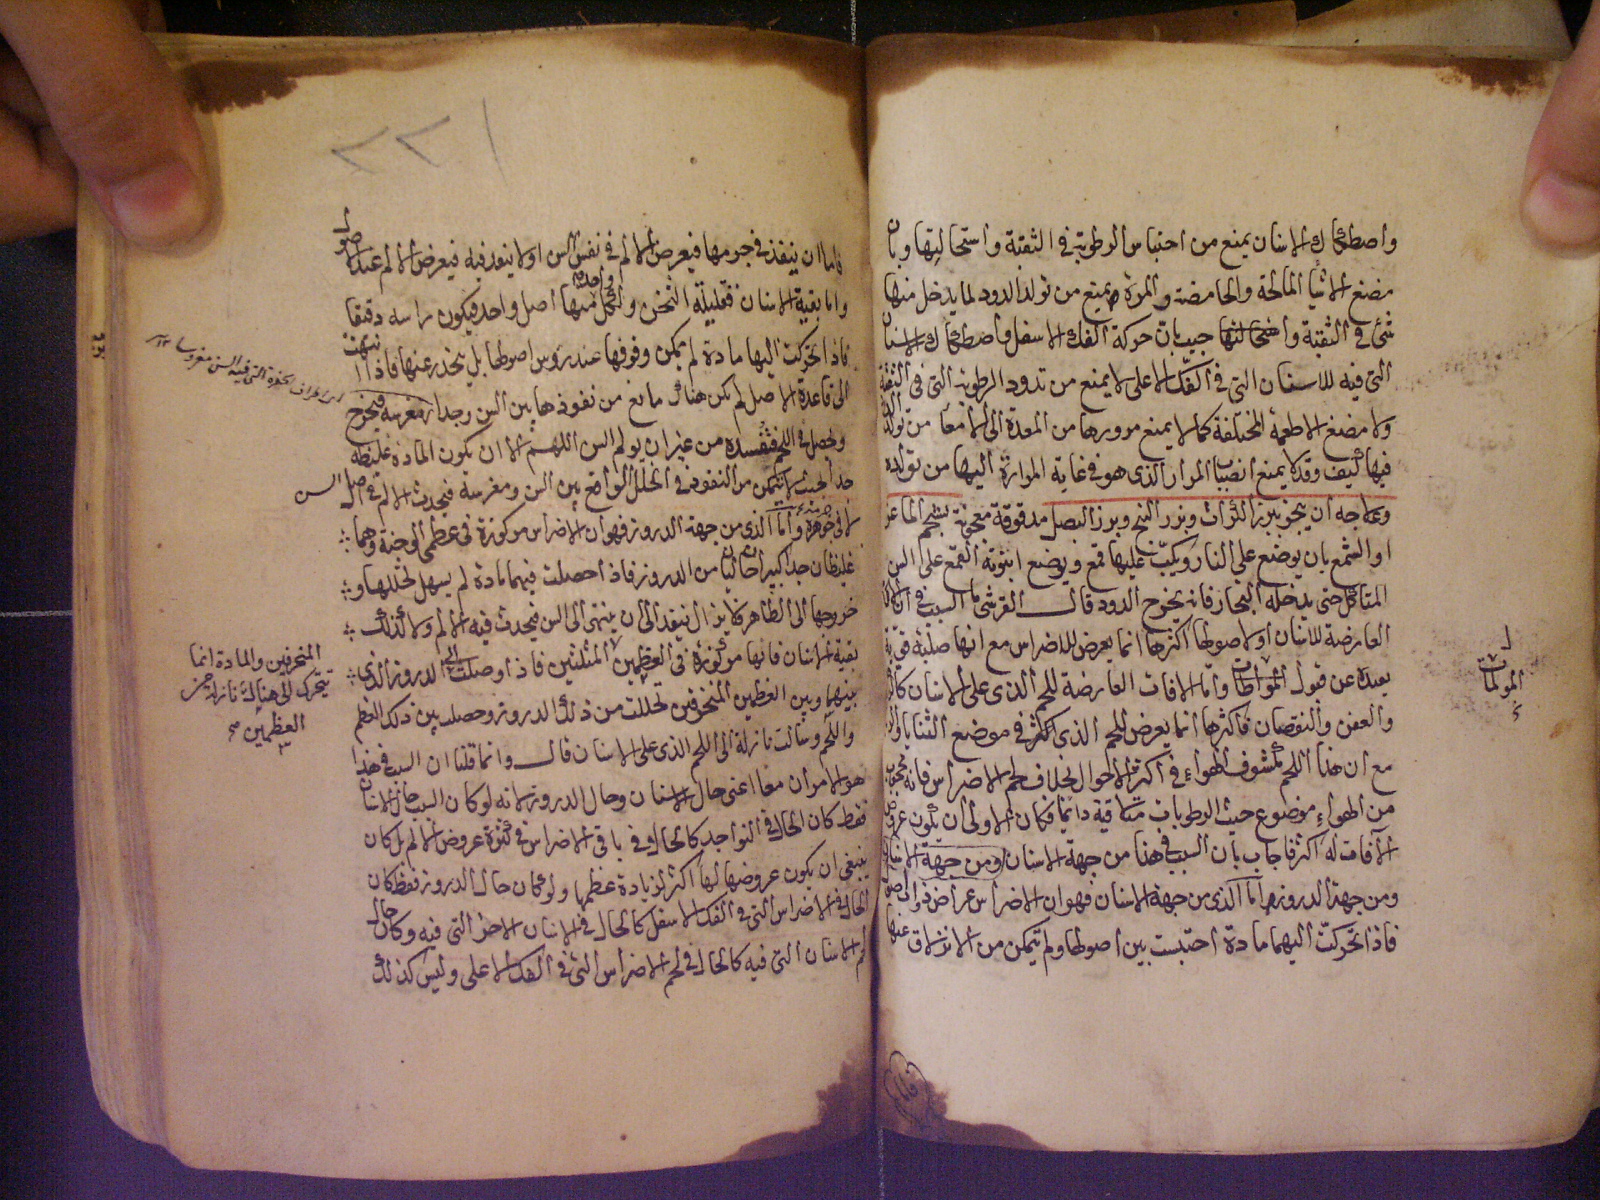 واصطكاك الاسنان يمنع من احتباس الرطوبة في الثقبة واستحالتها وبان
مضغ الاشياء المالحة والحامضة والمرة يمنع من تولد الدود لما يدخل منها
شئ في الثقبة واستحالتها اجيب بان حركة الفك الاسفل واصطكاك الاسنان
التي فيه للاسنان التي في الفك الاعلى لا يمنع من تدود الرطوبة التي في الثقبة
ولا مضغ الاطعمة المختلفة كما لا يمنع مرورها من المعدة الى الامعاء من تولد
فيها كيف وقد لا يمنع انصباب المرار الذي هو في غاية المرارة اليها من تولده
وعلاجه ان يبخر ببزر الكراث وبزر البنج وبزر البصل مدقوقة معجونة بشحم الماعز
او الشمع بان يوضع على النار ويكب عليها قمع ويوضع انبوبة القمع على السن
المتاكل حتى يدخله البخار فانه يخرج الدود قال القرشي السبب في ان
العارضة للاسنان او لاصولها اكثرها انما يعرض للاضراس مع انها صلبة قوية
بعيدة عن قبول واما الافات العارضة للحم الذي على الاسنان
والعفن والنقصان فاكثرها انما يعرض للحم الذي في موضع الثنايا
مع ان هذا اللحم مكشوف للهواء في اكثر الاحوال بخلاف لحم الاضراس فانه محجوب
من الهواء موضوع حيث الرطوبات متلاقية دائما فكان الاولى ان يكون عروض
الآفات له اكثر فاجاب بان السبب في هذا من جهة الاسنان ومن جهة
ومن جهة الدروز اما الذي من جهة الاسنان فهو ان الاضراس عراض ذوات اصول
فاذا تحركت اليها مادة احتبست بين اصولها ولم تتمكن من الانزلاق عنها
المولمات
٢٢١
فاما ان ينفذ في جرمها فيعرض الالم في نفس السن او لا ينفذ فيه فيعرض الالم عند اصوله
واما بقية الاسنان فقليلة الثخن ولكل واحدة منها اصل واحد فيكون راسه دقيقا
فاذا تحركت اليها مادة لم يمكن وقوفها عند رؤس اصولها بل ينحدر عنها فاذا انتهت
الى قاعدة الاصل لم يكن هناك مانع من نفوذها بين السن وجدار مغرسه فيخرج
ويحصل في اللحم فتفسده من غير ان يولم السن اللهم الا ان يكون المادة غليظة
جدا بحيث لا يتمكن من النفوذ في الخلل الواقع بين السن ومغرسه فيحدث الالم في اصل السن
لا في جوهره واما الذي من جهة الدروز فهو ان الاضراس مركوزة في عظمي الوجنة وهما
غليظان جدا كبيران خاليان من الدروز فاذا حصلت فيهما مادة لم يسهل تحللها و
خروجها الى الظاهر فلا يزال ينفذ الى ان ينتهي الى السن فيحدث فيه الالم ولا كذلك
بقية الاسنان فانها مركوزة في العظمين المثلثين فاذا وصلت الى الدروز الذي
بينها وبين العظمين المنحرفين تحللت من ذلك الدروز وحصلت بين ذلك العظم
واللحم وسالت نازلة الى اللحم الذي على الاسنان قال وانما قلنا ان السبب في هذا
هو الامران معا اعني حال الاسنان وحال الدروز لانه لو كان السبب حال الاسنان
فقط كان الحال في النواجد كالحال في باقي الاضراس في كثرة عروض الالم بل كان
ينبغي ان يكون عروضها لها اكثر لزيادة عظمها ولو كان حال الدروز فقط كان
الحال في الاضراس التي في الفك الاسفل كالحال في الاسنان الاخر التي فيه وكان حال
لحم الاسنان التي فيه كالحال في لحم الاضراس التي في الفك الاعلى وليس كذلك
المنحرفين والمادة انما
تتحرك الى هناك نازلة من
العظمين صح